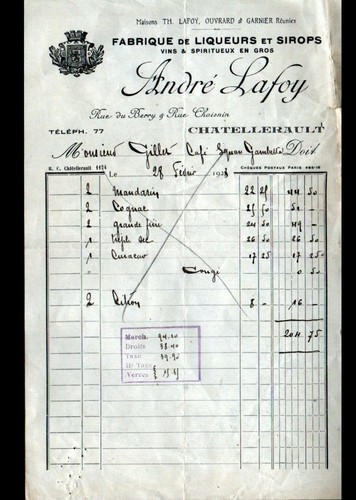 Maisons TH. LAFOY, OUVRARD & GARNIER Réunies
FABRIQUE DE LIQUEURS ET SIROPS
VINS & SPIRITUEUX EN GROS
André Lafoy
Rue du Berry & Rue Choisnin
TÉLÉPH. 77
CHATELLERAULT
Monsieur Gillet Café Square Gambetta Doit
R. C. Châtellerault 1124
Le 28 Février 1928
CHÈQUES POSTAUX PARIS
2 Mandarin 22 25 44 50
2 Cognac 25 50 51 -
2 grande fine 24 50 49 -
1 triple sec 26 50 26 50
1 Curacao 17 25 17 25
Congé 0 50
2 8 - 16 -
204 75
March.
Droits
Taxe
Verres